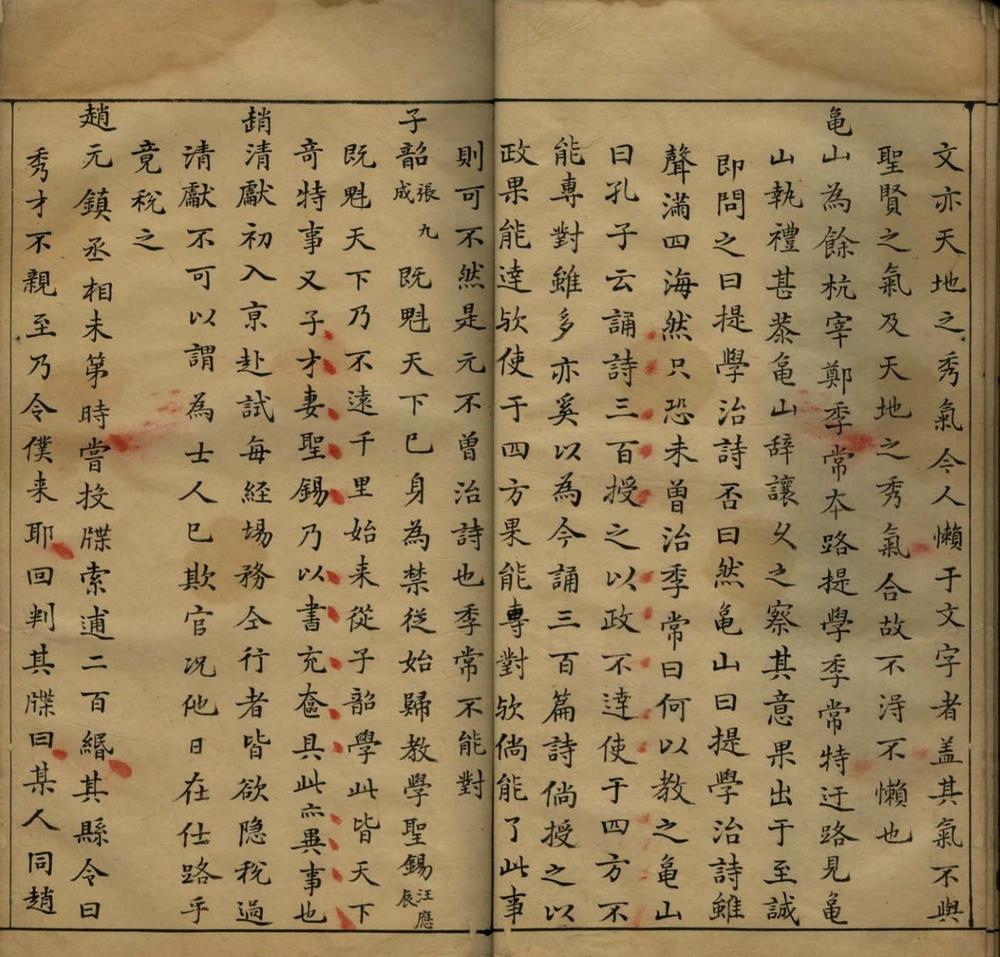 文亦天地之秀氣今人懶于文字者盖其氣不與
聖賢之氣及天地之秀氣合故不淂不懶也
亀山為餘杭宰鄭季常本路提學季常特迂路見亀
山執禮甚恭亀山辞讓久之察其意果出于至誠
即問之曰提學治詩否曰然亀山曰提學治詩雖
聲滿四海然只恐未曽治季常曰何以教之亀山
曰孔子云誦詩三百授之以政不達使于四方不
能專對雖多亦奚以為今誦三百篇詩倘授之以
政果能逹欤使于四方果能專對欤倘能了此事
則可不然是元不曽治詩也季常不能對
子韶張九成既魁天下已身為禁從始歸教學聖錫汪應辰
既魁天下乃不遠千里始来從子韶學此皆天下
奇特事又子才妻聖錫乃以書充奩具此亦異事也
趙清獻初入京赴試每経場務仝行者皆欲隐稅過
清獻不可以謂為士人已欺官况他日在仕路乎
竟稅之
趙元鎮丞相未第時嘗投牒索逋二百緡其縣令曰
秀才不親至乃令僕来耶回判其牒曰某人同趙